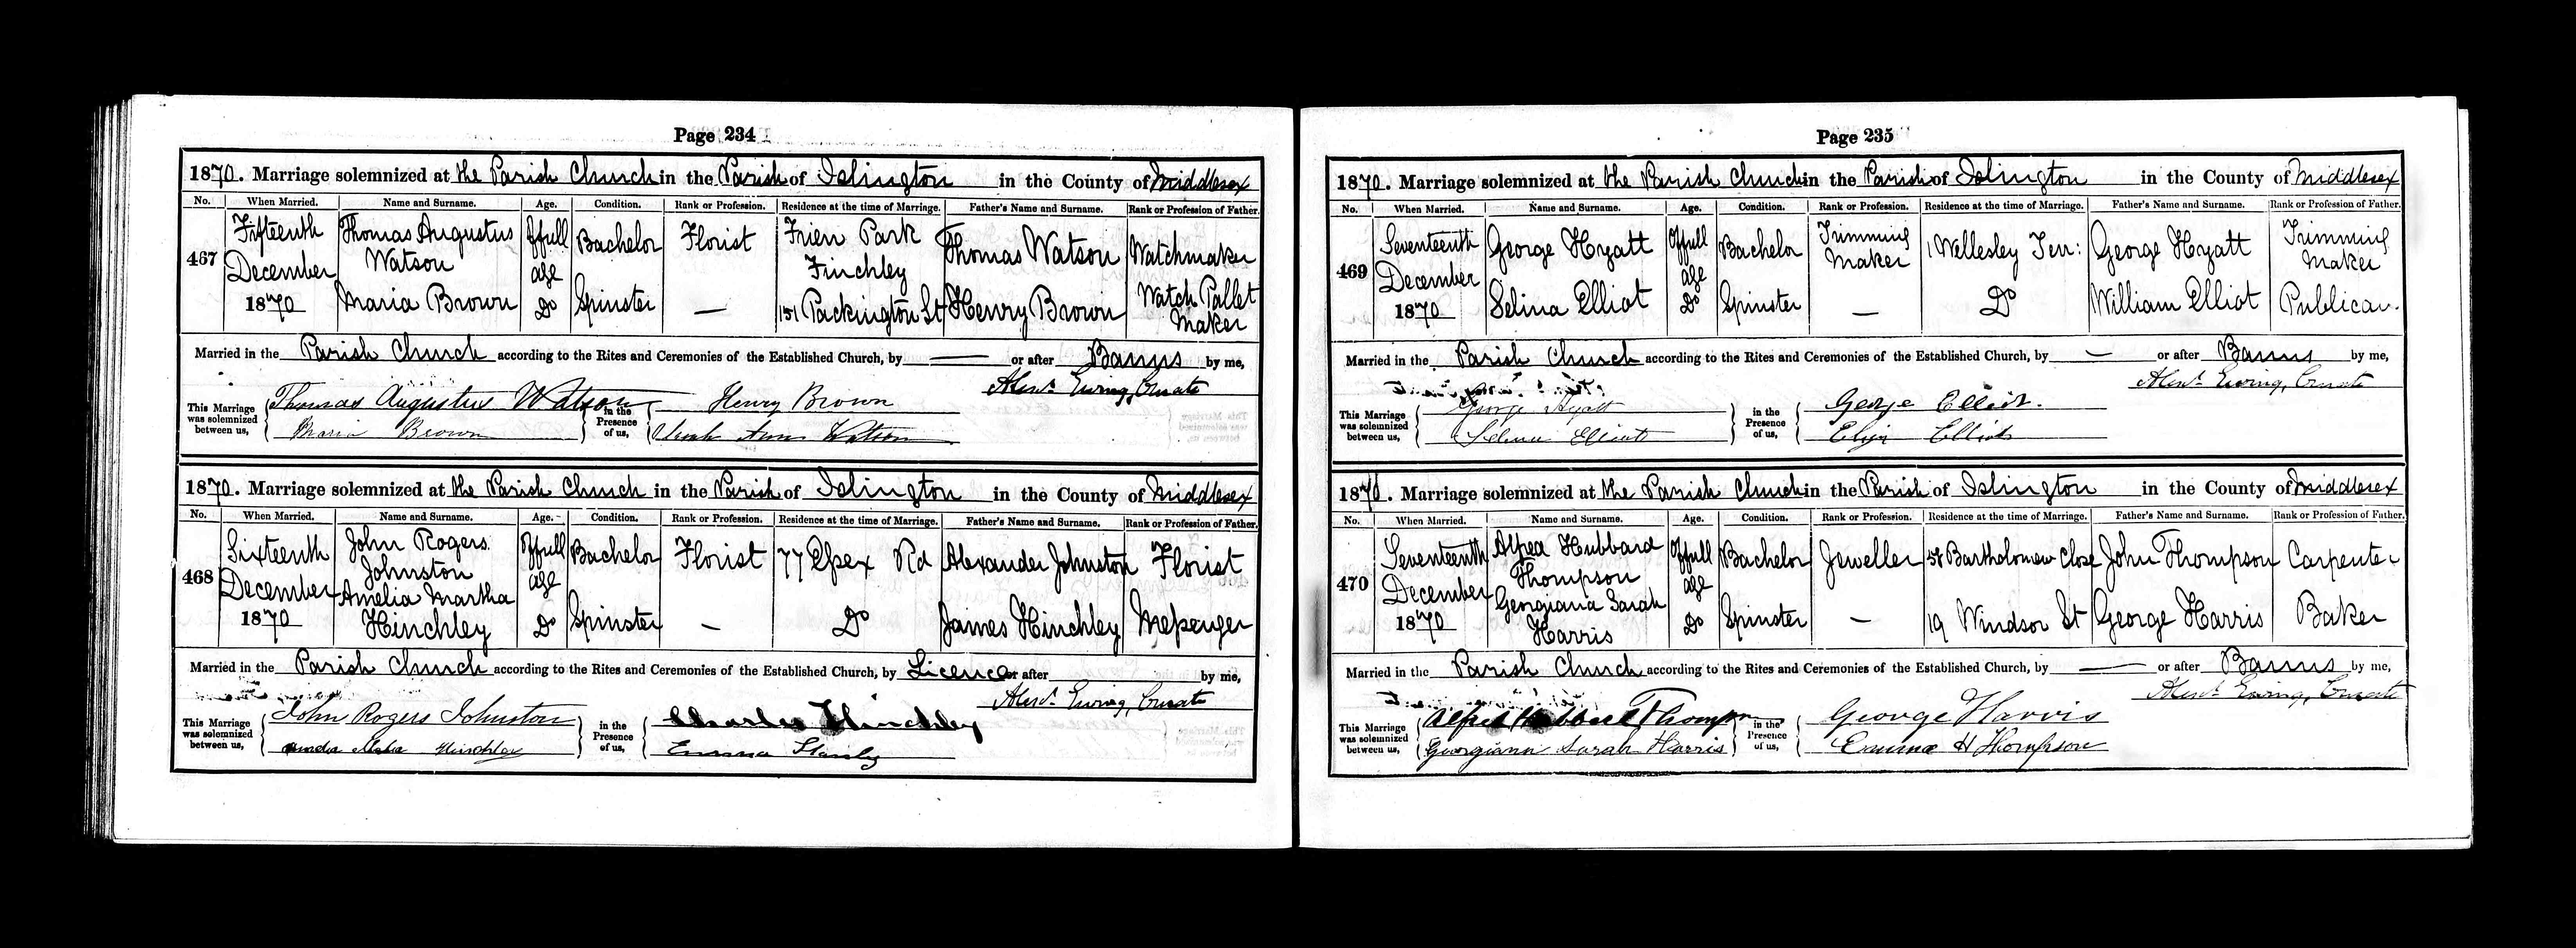 Page 234
1870. Marriage solemnized at the Parish Church in the Parish of Islington in the County of Middlesex
No. When Married. Name and Surname. Age. Condition. Rank or Profession. Residence at the time of Marriage. Father's Name and Surname. Rank or Profession of Father.
467 Fifteenth December 1870 Thomas Augustus Watson Of full age Bachelor Florist Frien Park Finchley Thomas Watson Watchmaker
Maria Brown Do Spinster — 151 Packington St Henry Brown Watch Pallet Maker
Married in the Parish Church according to the Rites and Ceremonies of the Established Church, by — or after Banns by me,
Alexr. Ewing, Curate
This Marriage was solemnized between us, Thomas Augustus Watson in the Presence of us, Henry Brown
Maria Brown Ann Watson
1870. Marriage solemnized at the Parish Church in the Parish of Islington in the County of Middlesex
No. When Married. Name and Surname. Age. Condition. Rank or Profession. Residence at the time of Marriage. Father's Name and Surname. Rank or Profession of Father.
468 Sixteenth December 1870 John Rogers Johnston Of full age Bachelor Florist 77 Essex Rd Alexander Johnston Florist
Amelia Martha Hinchley Do Spinster — Do James Hinchley Messenger
Married in the Parish Church according to the Rites and Ceremonies of the Established Church, by Licence or after by me,
Alexr. Ewing, Curate
This Marriage was solemnized between us, John Rogers Johnston in the Presence of us, Charles Hinchley
Hinchley Emma Stanley
Page 235
1870. Marriage solemnized at the Parish Church in the Parish of Islington in the County of Middlesex
No. When Married. Name and Surname. Age. Condition. Rank or Profession. Residence at the time of Marriage. Father's Name and Surname. Rank or Profession of Father.
469 Seventeenth December 1870 George Hyatt Of full age Bachelor Trimming Maker 1 Wellesley Terr: George Hyatt Trimming Maker
Selina Elliot Do Spinster — Do William Elliot Publican.
Married in the Parish Church according to the Rites and Ceremonies of the Established Church, by — or after Banns by me,
Alexr. Ewing, Curate
This Marriage was solemnized between us, George Hyatt in the Presence of us, George Elliot.
Selina Elliot Eliza Elliot
1870. Marriage solemnized at the Parish Church in the Parish of Islington in the County of Middlesex
No. When Married. Name and Surname. Age. Condition. Rank or Profession. Residence at the time of Marriage. Father's Name and Surname. Rank or Profession of Father.
470 Seventeenth December 1870 Alfred Hubbard Thompson Of full age Bachelor Jeweller 58 Bartholomew Close John Thompson Carpenter
Georgiana Sarah Harris Do Spinster — 19 Windsor St George Harris Baker
Married in the Parish Church according to the Rites and Ceremonies of the Established Church, by — or after Banns by me,
Alexr. Ewing, Curate
This Marriage was solemnized between us, Alfred Hubbard Thompson in the Presence of us, George Harris
Georgiana Sarah Harris Emma H Thompson